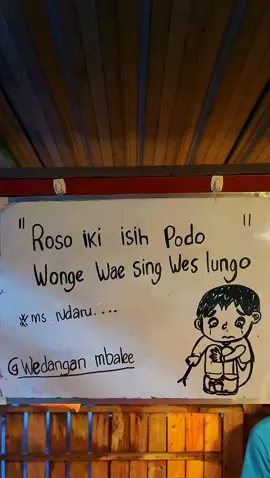 " Roso iki isih Podo "
Wonge Wae sing Wes lungo
*ms Ndaru....
@Wedangan mbalee